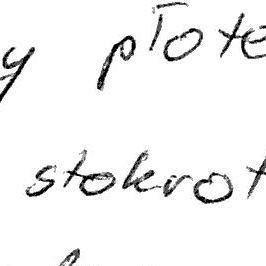 y płote
stokrot